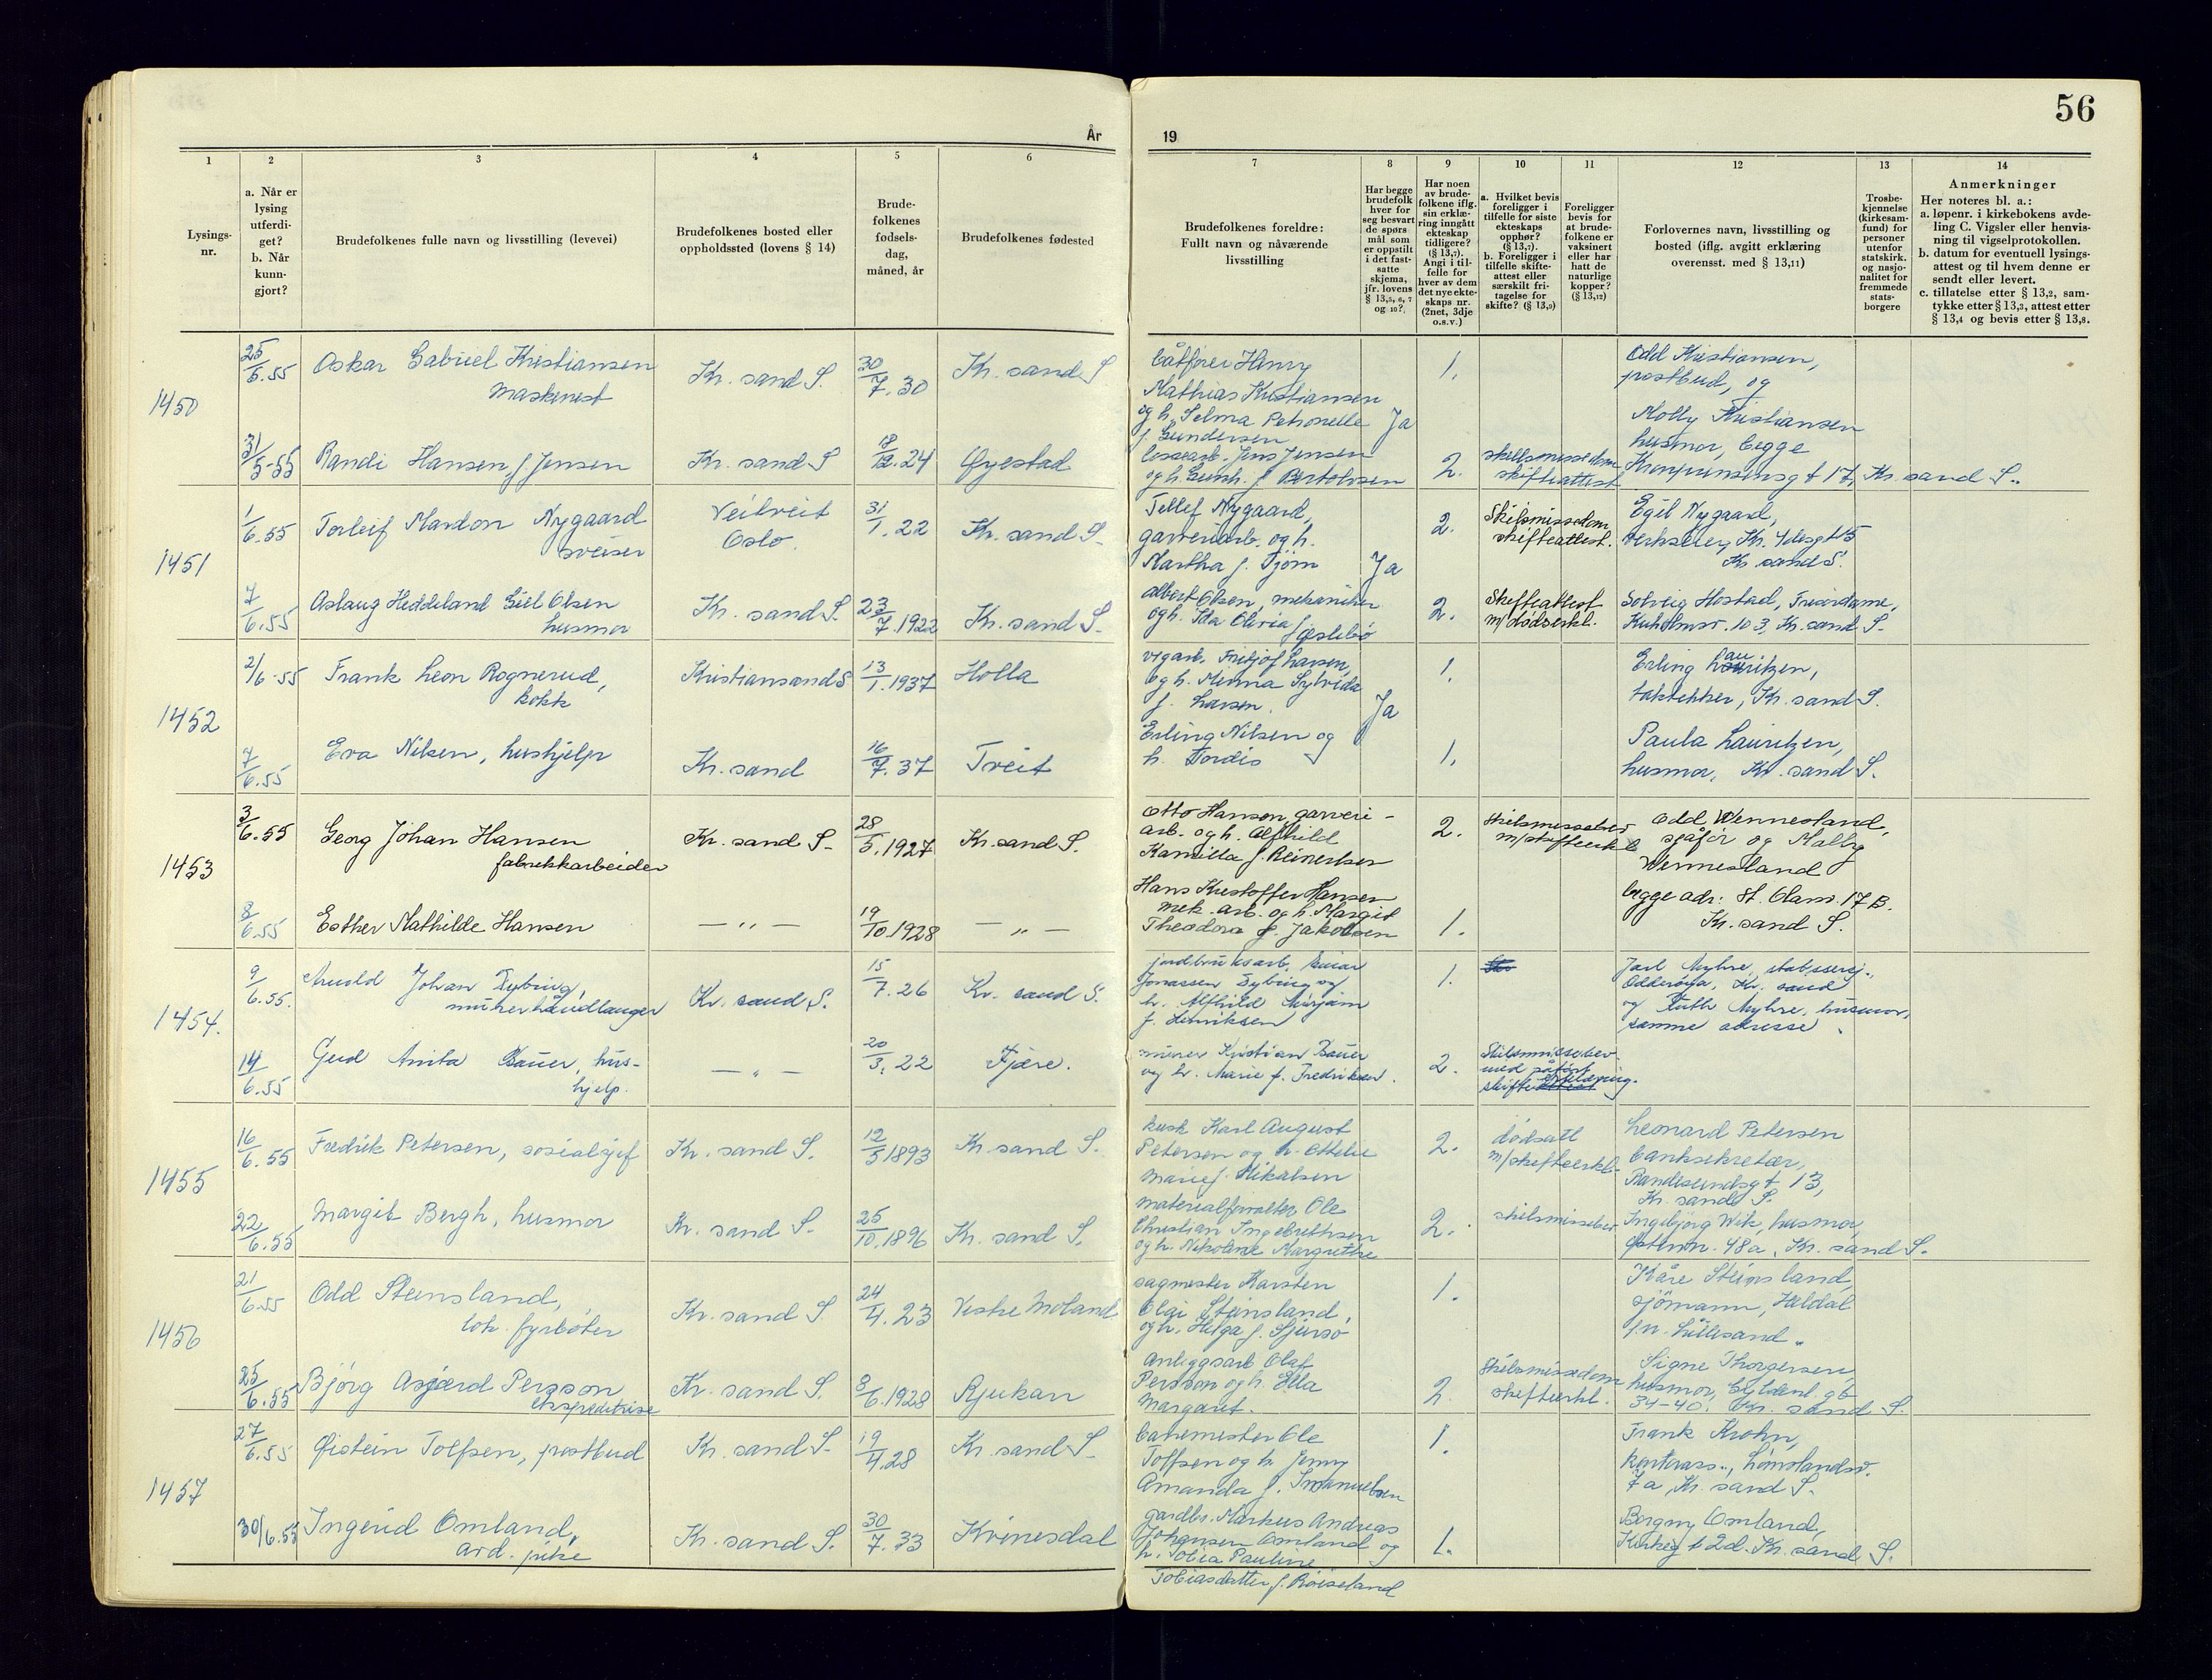 56
År
19
1
2
3
4
5
6
7
8
9
10
11
12
13
14
Lysings-
nr.
a. Når er
lysing
utferdi-
get?
b. Når
kunn-
gjort?
Brudefolkenes fulle navn og livsstilling (levevei)
Brudefolkenes bosted eller
oppholdssted (lovens § 14)
Brude-
folkenes
fødsels-
dag,
måned, år
Brudefolkenes fødested
Brudefolkenes foreldre:
Fullt navn og nåværende
livsstilling
Har begge
brudefolk
hver for
seg besvart
de spørs
mål som
er oppstilt
i det fast-
satte
skjema,
jfr. lovens
§ 13,5, 6, 7
og 10?
Har noen
av brude-
folkene iflg.
sin erklæ-
ring inngått
ekteskap
tidligere?
(§ 13,7).
Angi i til-
felle for
hver av dem
det nye ekte-
skaps nr.
(2net, 3dje
o.s.v.)
a. Hvilket bevis
foreligger i
tilfelle for siste
ekteskaps
opphør?
(§ 13,7).
b. Foreligger i
tilfelle skifte-
attest eller
særskilt fri-
tagelse for
skifte? (§ 13,9)
Foreligger
bevis for
at brude-
folkene er
vaksinert
eller har
hatt de
naturlige
kopper?
(§ 13,12)
Forlovernes navn, livsstilling og
bosted (iflg. avgitt erklæring
overensst. med § 13,11)
Trosbe-
kjennelse
(kirkesam-
fund) for
personer
utenfor
statskirk.
og nasjo-
nalitet for
fremmede
stats-
borgere
Anmerkninger
Her noteres bl. a.:
a. løpenr. i kirkebokens avde-
ling C. Vigsler eller henvis-
ning til vigselprotokollen.
b. datum for eventuell lysings-
attest og til hvem denne er
sendt eller levert.
c. tillatelse etter § 13,2, sam-
tykke etter § 13,3, attest etter
§ 13,4 og bevis etter § 13,8.
1450
25/5.55
Oskar Gabriel Kristiansen
maskinist
Kr. sand S.
30/7.30
Kr. sand S
båtfører Henry
Mathias Kristiansen
og h. Selma Petronelle
f. Gundersen
Ja
1.
Odd Kristiansen,
postbud, og
Molly Kristiansen
31/5-55
Randi Hansen f. Jensen
Kr. sand S
18/12.24
Øyestad
lossearb. Jens Jensen
og h. Gunh. f. Bertelsen
2.
skilsmissedom
skifteattest
husmor, begge
Kronprinsensgt 17, Kr. sand S.
1451
1/6.55
Torleif Mardon Nygaard
sveiser
Veitveit
Oslo.
31/1.22
Kr. sand S.
Tellef Nygaard,
garveriarb. og h.
Martha f. Tjøm
Ja
2.
Skilsmissedom
skifteattest.
Egil Nygaard,
verkseier, Kr. 4desgt 15
Kr. sand S.
7/6.55
Aslaug Heddeland Giel Olsen
husmor
Kr. sand S.
23/7.1922
Kr. sand S.
Albert Olsen, mekaniker
og h. Ida Olivia f.
2.
Skifteattest
m/dødserkl.
Solveig Hostad, Frisørdame,
Kuholmsv. 103, Kr. sand S.
1452
2/6-55
Frank Leon Rognerud,
kokk
Kristiansand S
13/1.1937
Holla
vegarb. Fritjof Larsen,
og h. Minna Sylvida
f. Larsen.
Ja
1.
Erling Lauritzen,
taktekker, Kr. sand S.
7/6.55
Eva Nilsen, hushjelp
Kr. sand
16/7.37
Tveit
Erling Nilsen og
h. Tordis
1.
Paula Lauritzen,
husmor, Kr. sand S.
1453
3/6.55
Georg Johan Hansen
fabrikkarbeider
Kr. sand S.
28/5.1927
Kr. sand S.
Otto Hanson, garveri-
arb. og h. Alfhild
Kamilla f. Reinertsen
2.
Skilsmissebev
m/skifteerkl
Odd Wennesland,
sjåfør og Malby
Wennesland
8/6.55
Esther Mathilde Hansen
— " —
19/10.1928
— " —
Hans Kristoffer Hansen
mek. arb. og h. Margit
Theodora f. Jakobsen
1.
begge adr: St. Olavs. 17 B.
Kr. sand S.
1454.
9/6.55.
Arnold Johan Dybing,
murerhåndlanger
Kr. sand S.
15/7.26
Kr. sand S.
jordbruksarb. Einar
Jonassen Dybing og
h. Alfhild Mirjam
f. Henriksen
1.
Jarl Myhre, stabssersj.,
Odderøya, Kr. sand
og Ruth Myhre, husmor,
samme adresse
14/6.55
Gud Anita Bauer, hus-
hjelp.
— " —
20/3.22
Fjære.
murer Kristian Bauer
og h. Marie f. Fredriksen.
2.
Skilsmissebev
med påført
skifte erklæring.
1455
16/6.55
Fredrik Petersen, sosialsjef
Kr. sand S.
12/5 1893
Kr. sand S.
kusk Karl August
Petersen og h. Ottelie
Marie f. Mikalsen
2.
dødsatt
m/skifteerkl.
Leonard Petersen
banksekretær,
Randesundsgt 13,
Kr. sand S.
22/6.55
Margit Bergh, husmor
Kr. sand S.
25/10.1896
Kr. sand S.
materialforvalter Ole
Christian Ingebrethsen
og h. Nikoline Margrethe
2.
skilsmissebev
Ingebjørg Wik, husmor,
Østerv. 48a, Kr. sand S.
1456
21/6.55
Odd Steinsland,
lok. fyrbøter
Kr. sand S.
24/4.23
Vestre Moland
sagmester Karsten
Olai Steinsland,
og h. Helga f. Sjursø
1.
Kåre Steinsland,
sjømann, Heldal
p.n. Lillesand
25/6.55
Bjørg Asjærd Persson
ekspeditrise
Kr. sand S.
8/6.1928
Rjukan
Anleggsarb Olaf
Persson og h. Ella
Margaret.
2.
Skilsmissedom
skifteerkl.
Signe Thorgersen,
husmor, Gyldenl. gt
34-40. Kr. sand S.
1457
27/6.55
Øistein Tolfsen, postbud
Kr. sand S.
19/4.28
Kr. sand S.
banemester Ole
Tolfsen og h. Jenny
Amanda f. Immanuelsen
1.
Frank Krohn,
kontorass., Lømslandsv.
7a, Kr. sand S.
30/6.55
Ingerid Omland,
ard. pike
Kr. sand S.
30/7.33
Kvinesdal
gardbr. Markus Andreas
Johansen Omland og
h. Tobia Pauline
Tobiasdatter f. Røiseland
1.
Bergny Omland,
Kirkegt 2d. Kr. sand S.